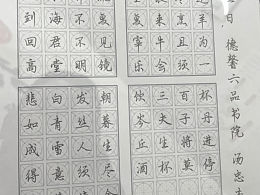 到海不复
回君不见
高堂明镜
悲白发朝
如青丝暮
成雪人生
得意须尽
复来烹羊
宰牛且为
乐会须一
饮三百杯
岑夫子丹
丘生将进
酒杯莫停
日 德馨六品书院 汤忠